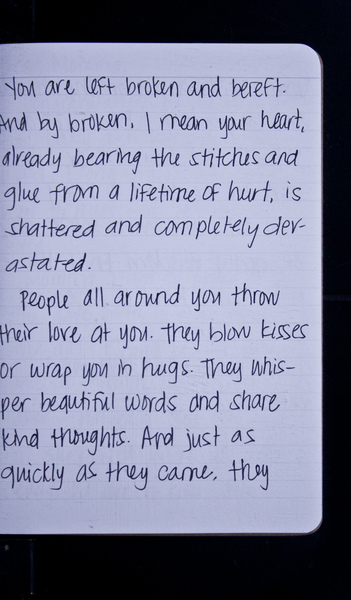 You are left broken and bereft.
And by broken, I mean your heart,
already bearing the stitches and
glue from a lifetime of hurt, is
shattered and completely dev-
astated.
People all around you throw
their love at you. They blow kisses
or wrap you in hugs. They whis-
per beautiful words and share
kind thoughts. And just as
quickly as they came, they